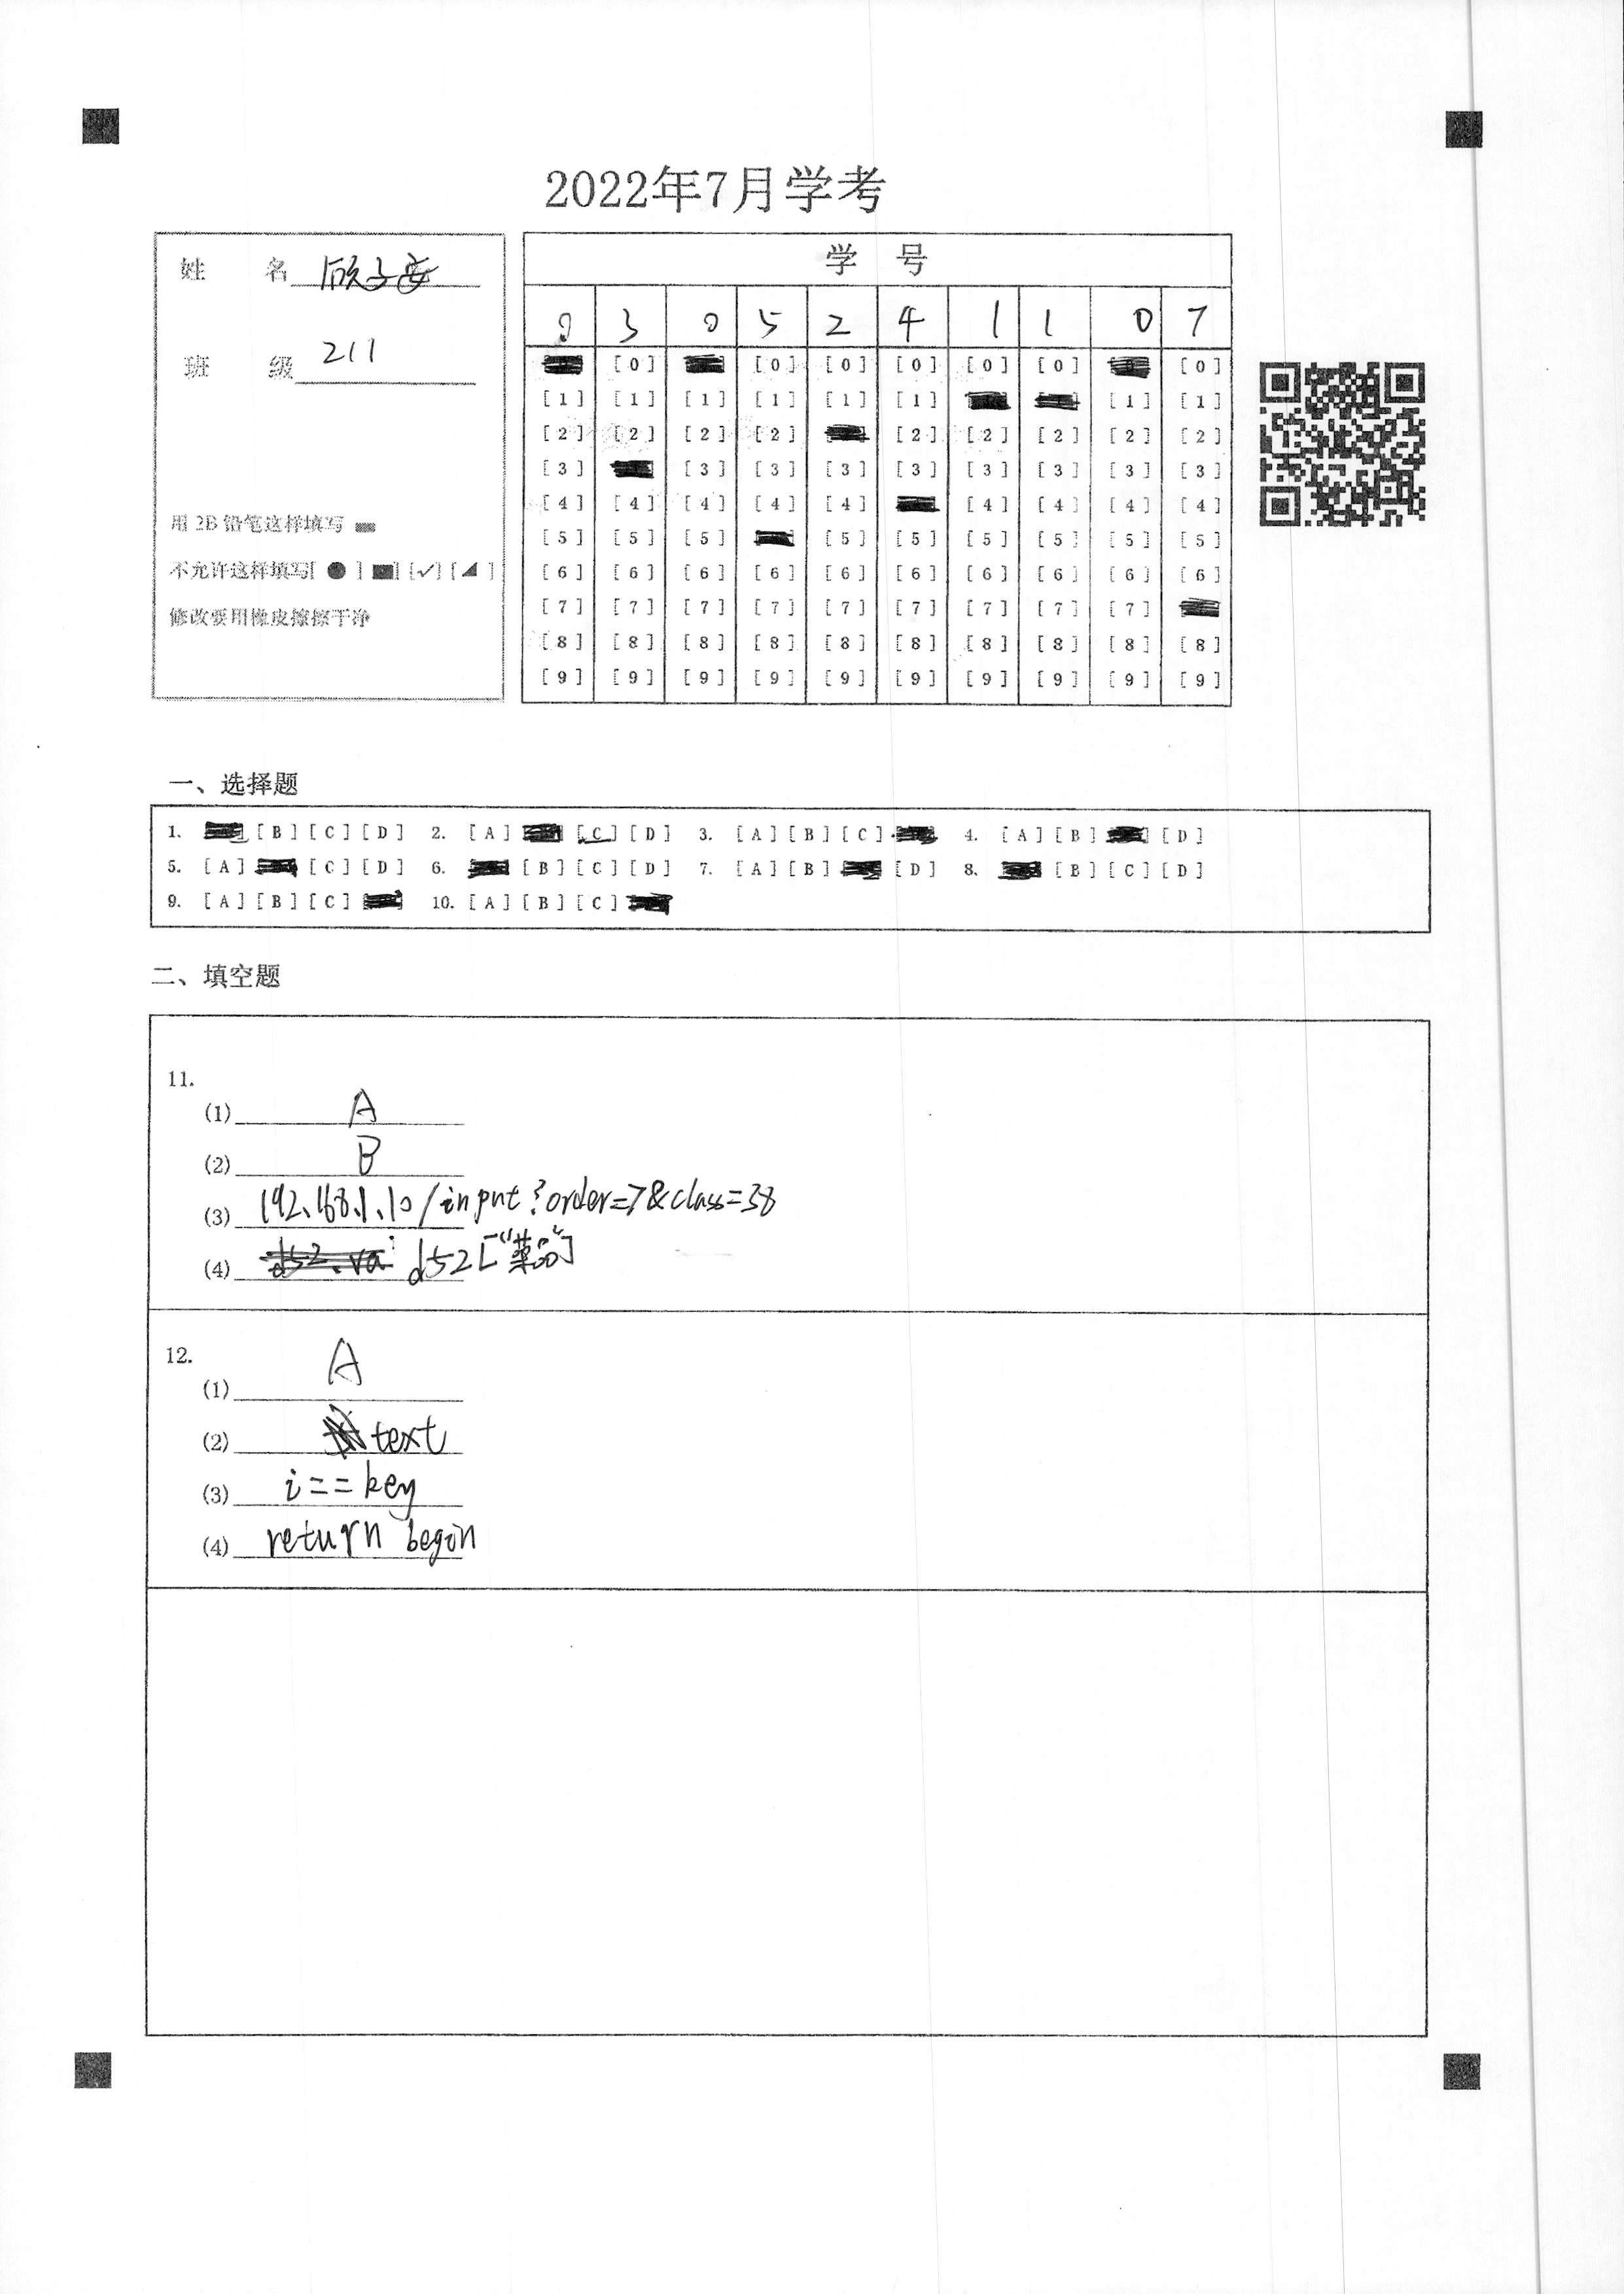 2022年7月学考
姓 名
班 级 211
用 2B 铅笔这样填写
不允许这样填写[ ● ] [■] [✓] [◢ ]
修改要用橡皮擦擦干净
学 号
0 3 0 5 2 4 1 1 0 7
[0] [0] [0] [0] [0] [0] [0]
[1] [1] [1] [1] [1] [1] [1] [1]
[2] [2] [2] [2] [2] [2] [2] [2] [2]
[3] [3] [3] [3] [3] [3] [3] [3] [3]
[4] [4] [4] [4] [4] [4] [4] [4] [4]
[5] [5] [5] [5] [5] [5] [5] [5] [5]
[6] [6] [6] [6] [6] [6] [6] [6] [6] [6]
[7] [7] [7] [7] [7] [7] [7] [7] [7]
[8] [8] [8] [8] [8] [8] [8] [8] [8] [8]
[9] [9] [9] [9] [9] [9] [9] [9] [9] [9]
一、选择题
1. [B] [C] [D] 2. [A] [C] [D] 3. [A] [B] [C] 4. [A] [B] [D]
5. [A] [C] [D] 6. [B] [C] [D] 7. [A] [B] [D] 8. [B] [C] [D]
9. [A] [B] [C] 10. [A] [B] [C]
二、填空题
11.
(1) A
(2) B
(3) 192.168.1.10/input?order=7&class=38
(4) d52["药品"]
12.
(1) A
(2) text
(3) i==key
(4) return begin